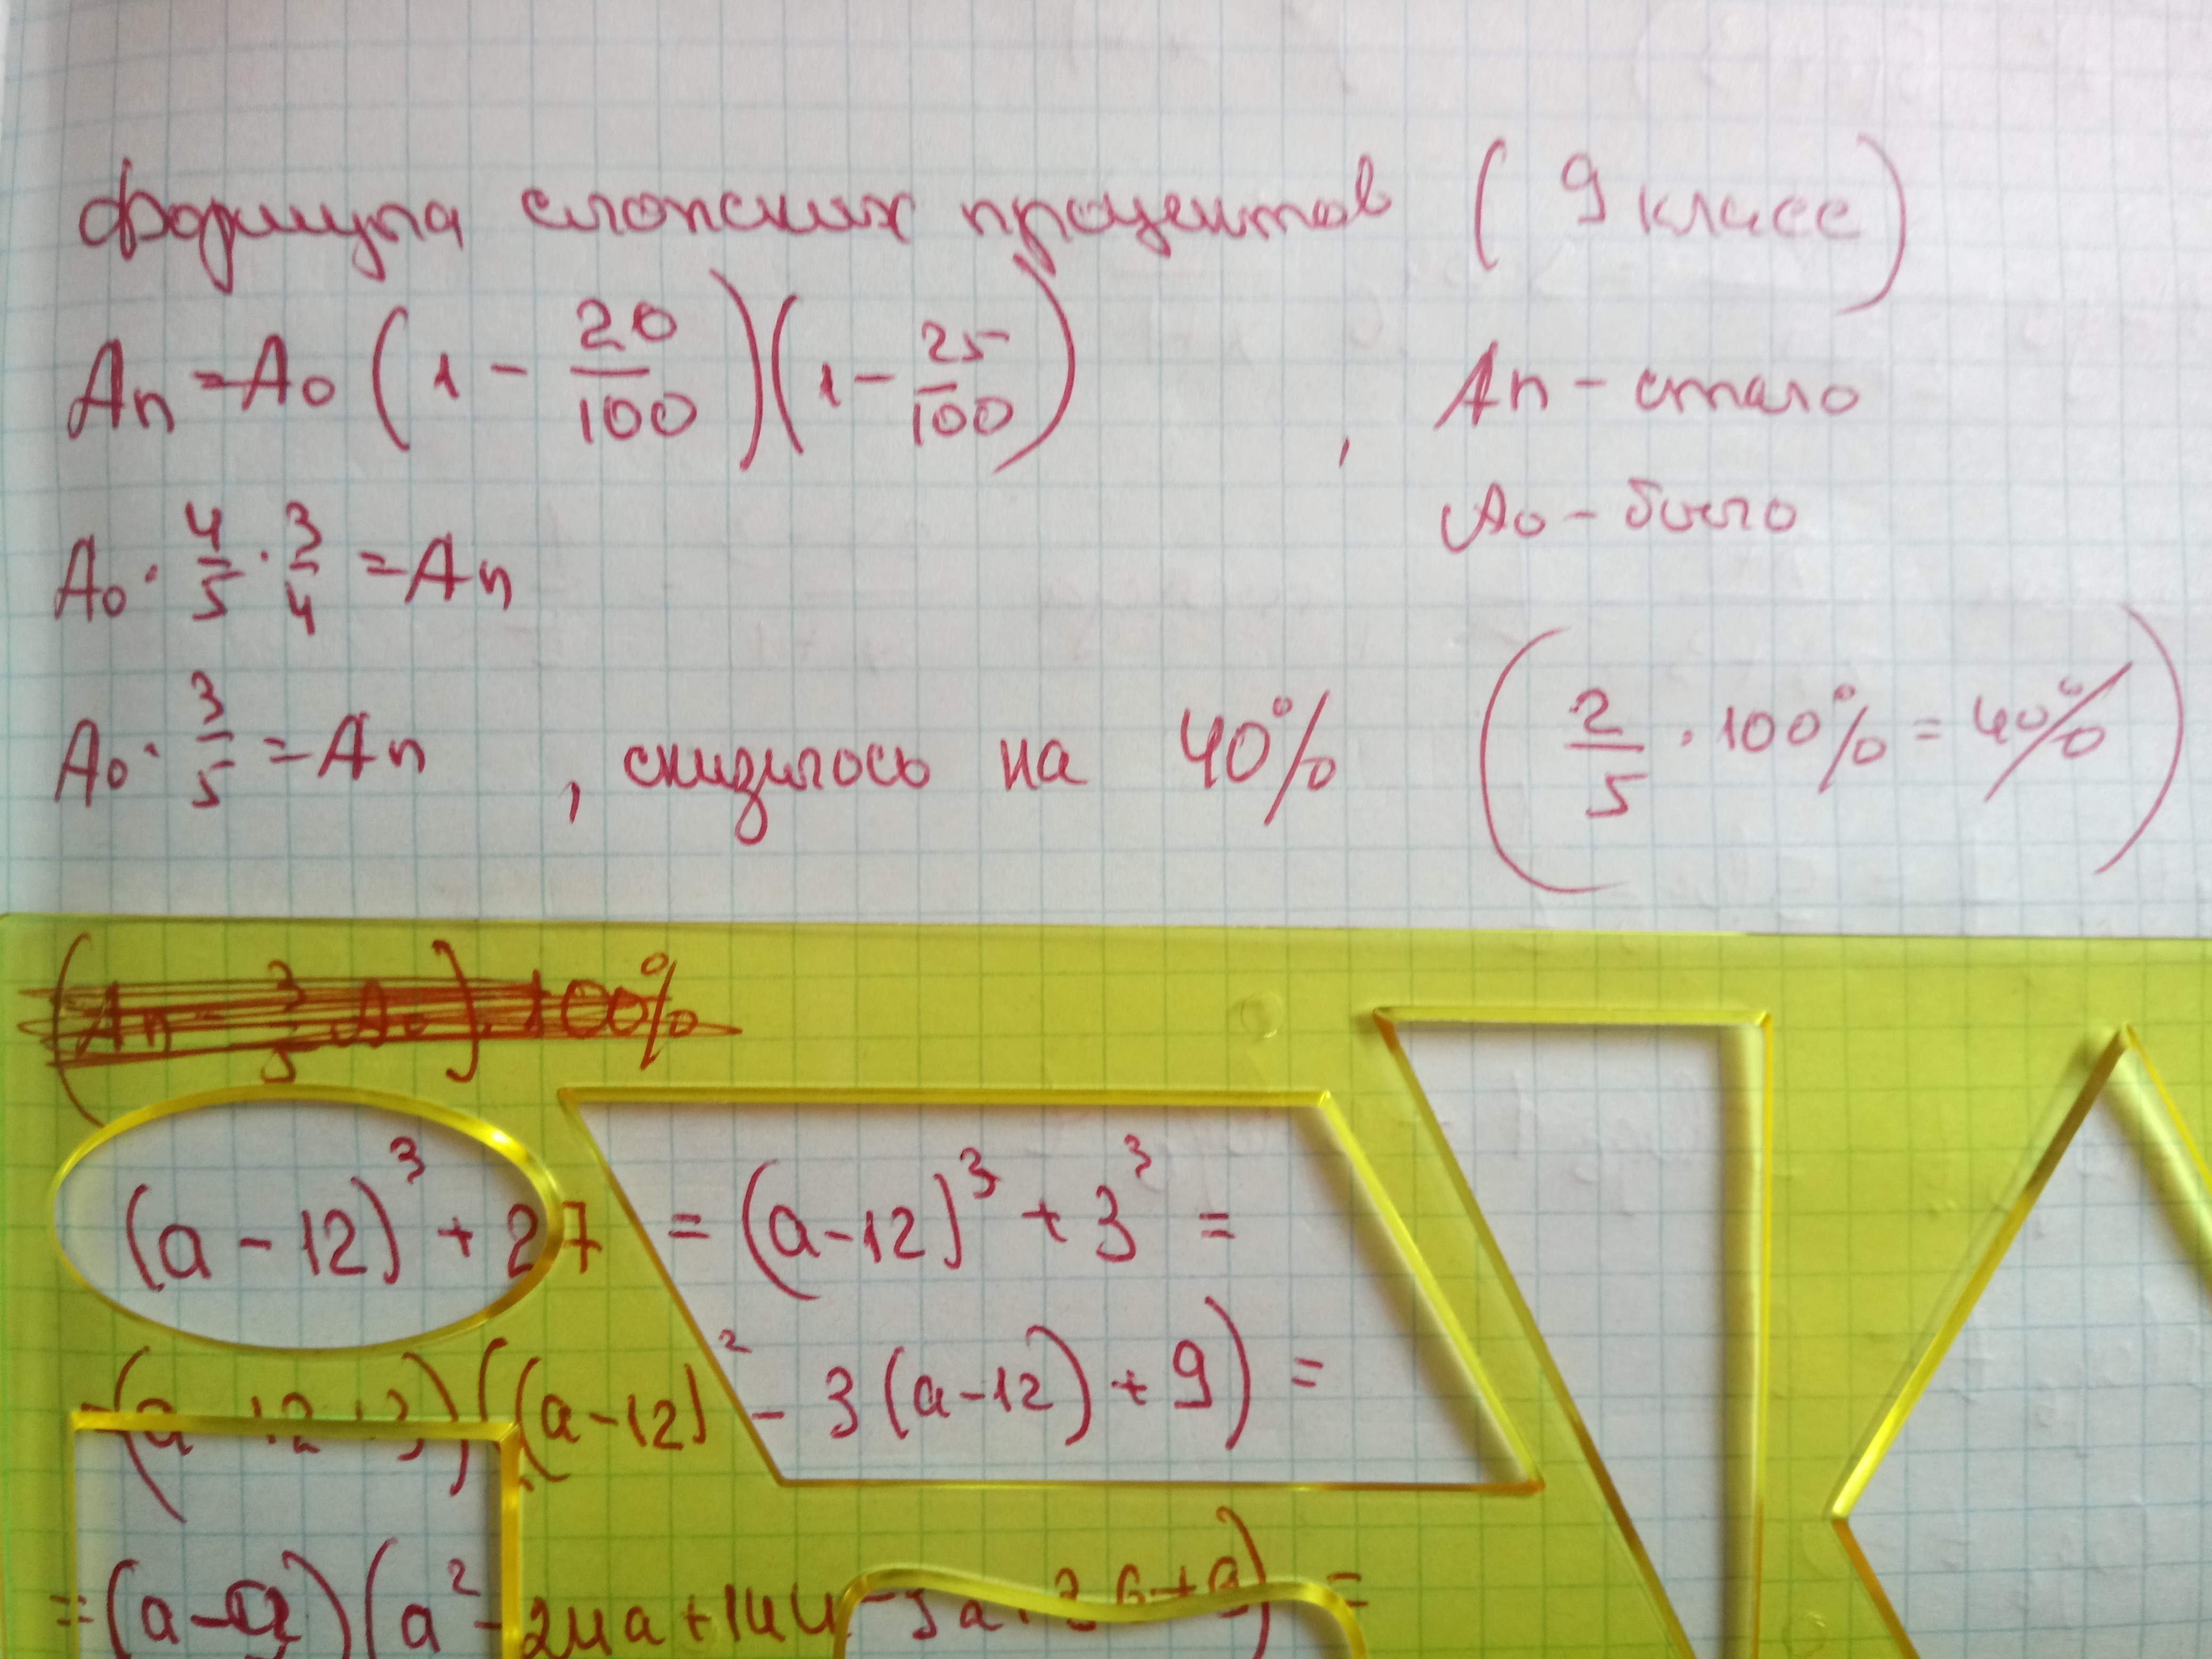 формула сложных процентов (9 класс)
Aп = A₀ (1 - 20/100)(1 - 25/100) , Aп - стало
A₀ · 4/5 · 3/4 = Aп A₀ - было
A₀ · 3/5 = Aп , снизилось на 40% (2/5 · 100% = 40%)
(Aп - 3/5 A₀) · 100%
(a - 12)³ + 27 = (a - 12)³ + 3³ =
= (a - 12 + 3)((a - 12)² - 3(a - 12) + 9) =
= (a - 9)(a² - 24a + 144 - 3a + 36 + 9) =